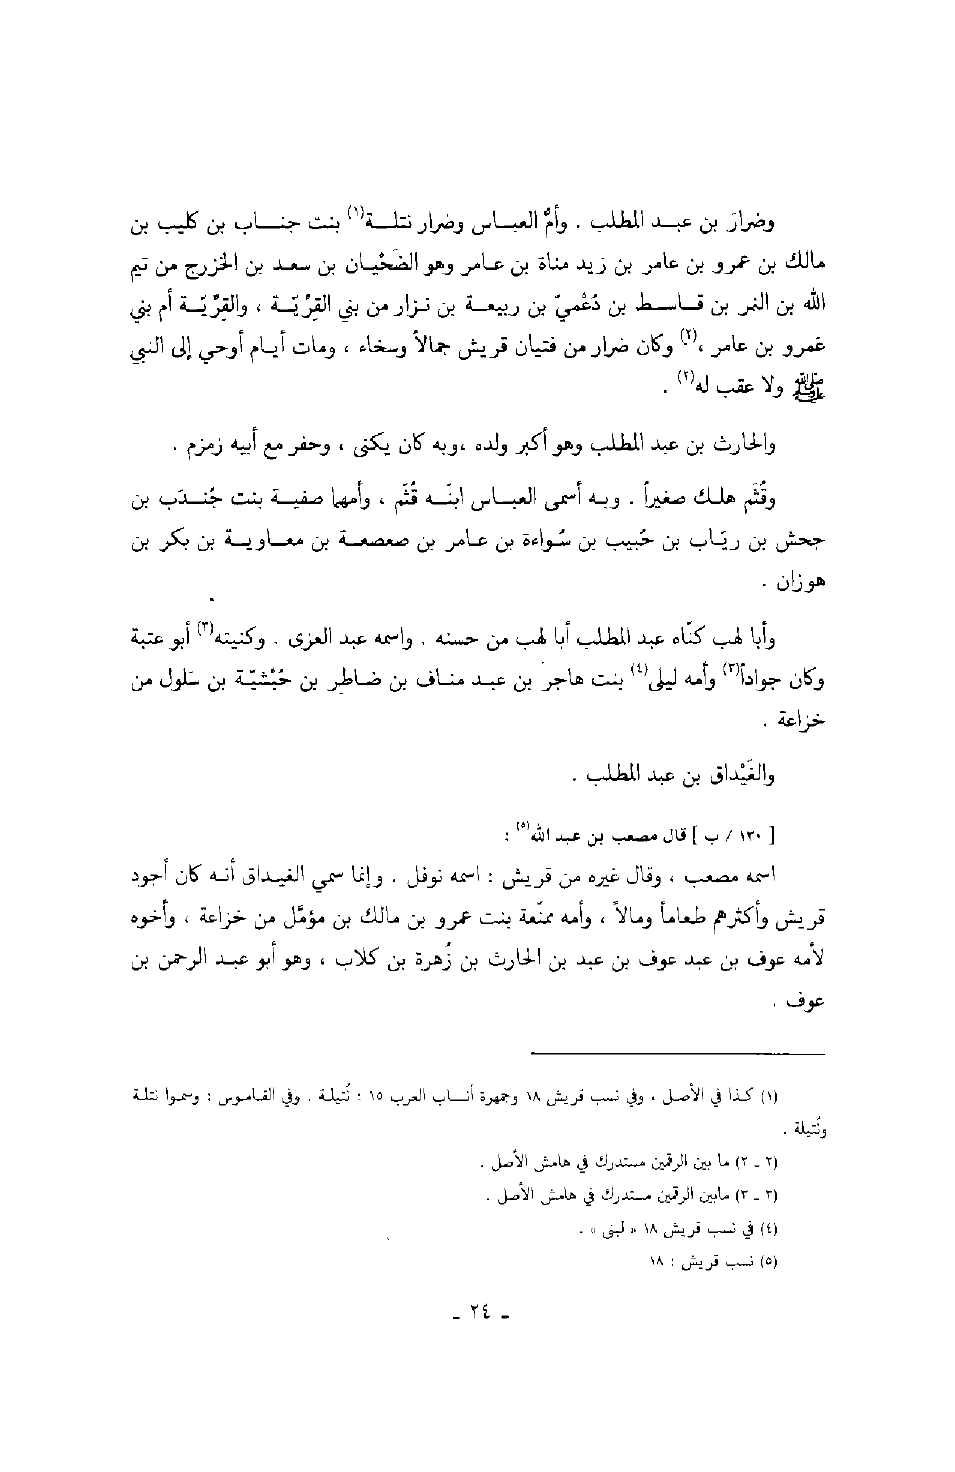 وضرارَ بن عبد المطلب . وأمّ العباس وضرار نتلة(١) بنت جناب بن كليب بن
مالك بن عمرو بن عامر بن زيد مناة بن عامر وهو الضَحْيان بن سعد بن الخزرج من تيم
الله بن النمر بن قاسط بن دُعْميّ بن ربيعة بن نزار من بني القِرِّيّة ، والقِرِّيّة أم بني
عَمرو بن عامر ،(٢) وكان ضرار من فتيان قريش جمالاً وسخاء ، ومات أيام أوحي إلى النبي
ﷺ ولا عقب له(٢) .
والحارث بن عبد المطلب وهو أكبر ولده ،وبه كان يكنى ، وحفر مع أبيه زمزم .
وقُثَم هلك صغيراً . وبه أسمى العباس ابنَه قُثَم ، وأمها صفية بنت جُندَب بن
جحش بن ريَاب بن حُبيب بن سُواءة بن عامر بن صعصعة بن معاوية بن بكر بن
هوزان .
وأبا لهب كنّاه عبد المطلب أبا لهب من حسنه . واسمه عبد العزى . وكنيته(٣) أبو عتبة
وكان جواداً(٣) وأمه ليلى(٤) بنت هاجرَ بن عبد مناف بن ضاطِر بن حُبْشيّة بن سَلول من
خزاعة .
والغَيْداق بن عبد المطلب .
[ ١٣٠ / ب ] قال مصعب بن عبد الله(٥) :
اسمه مصعب ، وقال غيره من قريش : اسمه نوفل . وإنما سمي الغيداق أنه كان أجود
قريش وأكثرهم طعاماً ومالاً ، وأمه ممنّعة بنت عمرو بن مالك بن مؤمَّل من خزاعة ، وأخوه
لأمه عوف بن عبد عوف بن عبد بن الحارث بن زُهرة بن كلاب ، وهو أبو عبد الرحمن بن
عوف .
(١) كذا في الأصل ، وفي نسب قريش ١٨ وجمهرة أنساب العرب ١٥ : نُتيلة . وفي القاموس : وسموا نتلة
ونُتيلة .
(٢ ـ ٢) ما بين الرقمين مستدرك في هامش الأصل .
(٣ ـ ٣) مابين الرقمين مستدرك في هامش الأصل .
(٤) في نسب قريش ١٨ « لبنى » .
(٥) نسب قريش : ١٨
ـ ٢٤ ـ